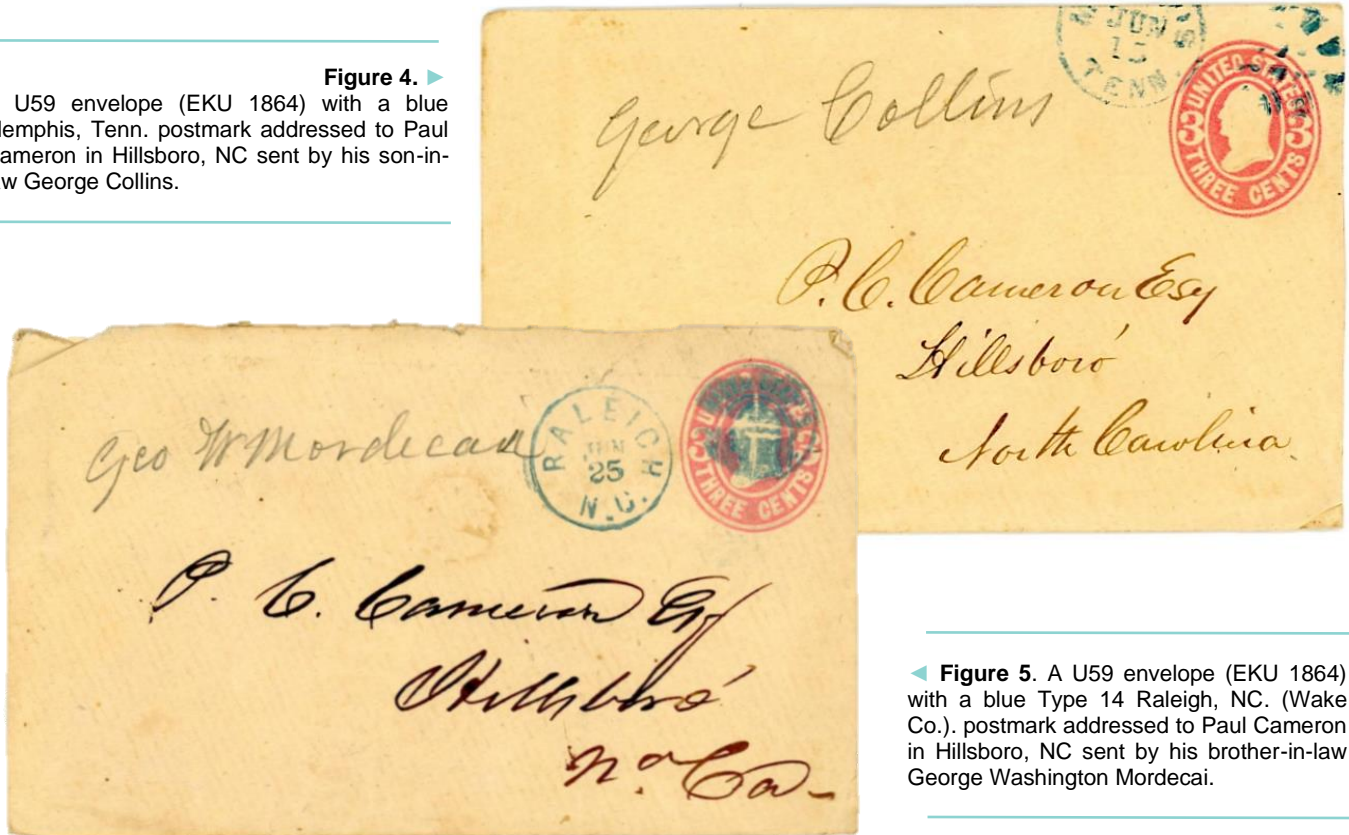 Figure 4. ►
U59 envelope (EKU 1864) with a blue
emphis, Tenn. postmark addressed to Paul
ameron in Hillsboro, NC sent by his son-in-
w George Collins.
George Collins
JUN
TENN.
UNITED STATES
3 3
THREE CENTS
P. C. Cameron Esq
Hillsboro'
North Carolina.
Geo W Mordecai
RALEIGH
JUN
25
N.C.
3 3
THREE CENTS
P. C. Cameron Esq
Hillsboro'
No Ca-
◄ Figure 5. A U59 envelope (EKU 1864)
with a blue Type 14 Raleigh, NC. (Wake
Co.). postmark addressed to Paul Cameron
in Hillsboro, NC sent by his brother-in-law
George Washington Mordecai.